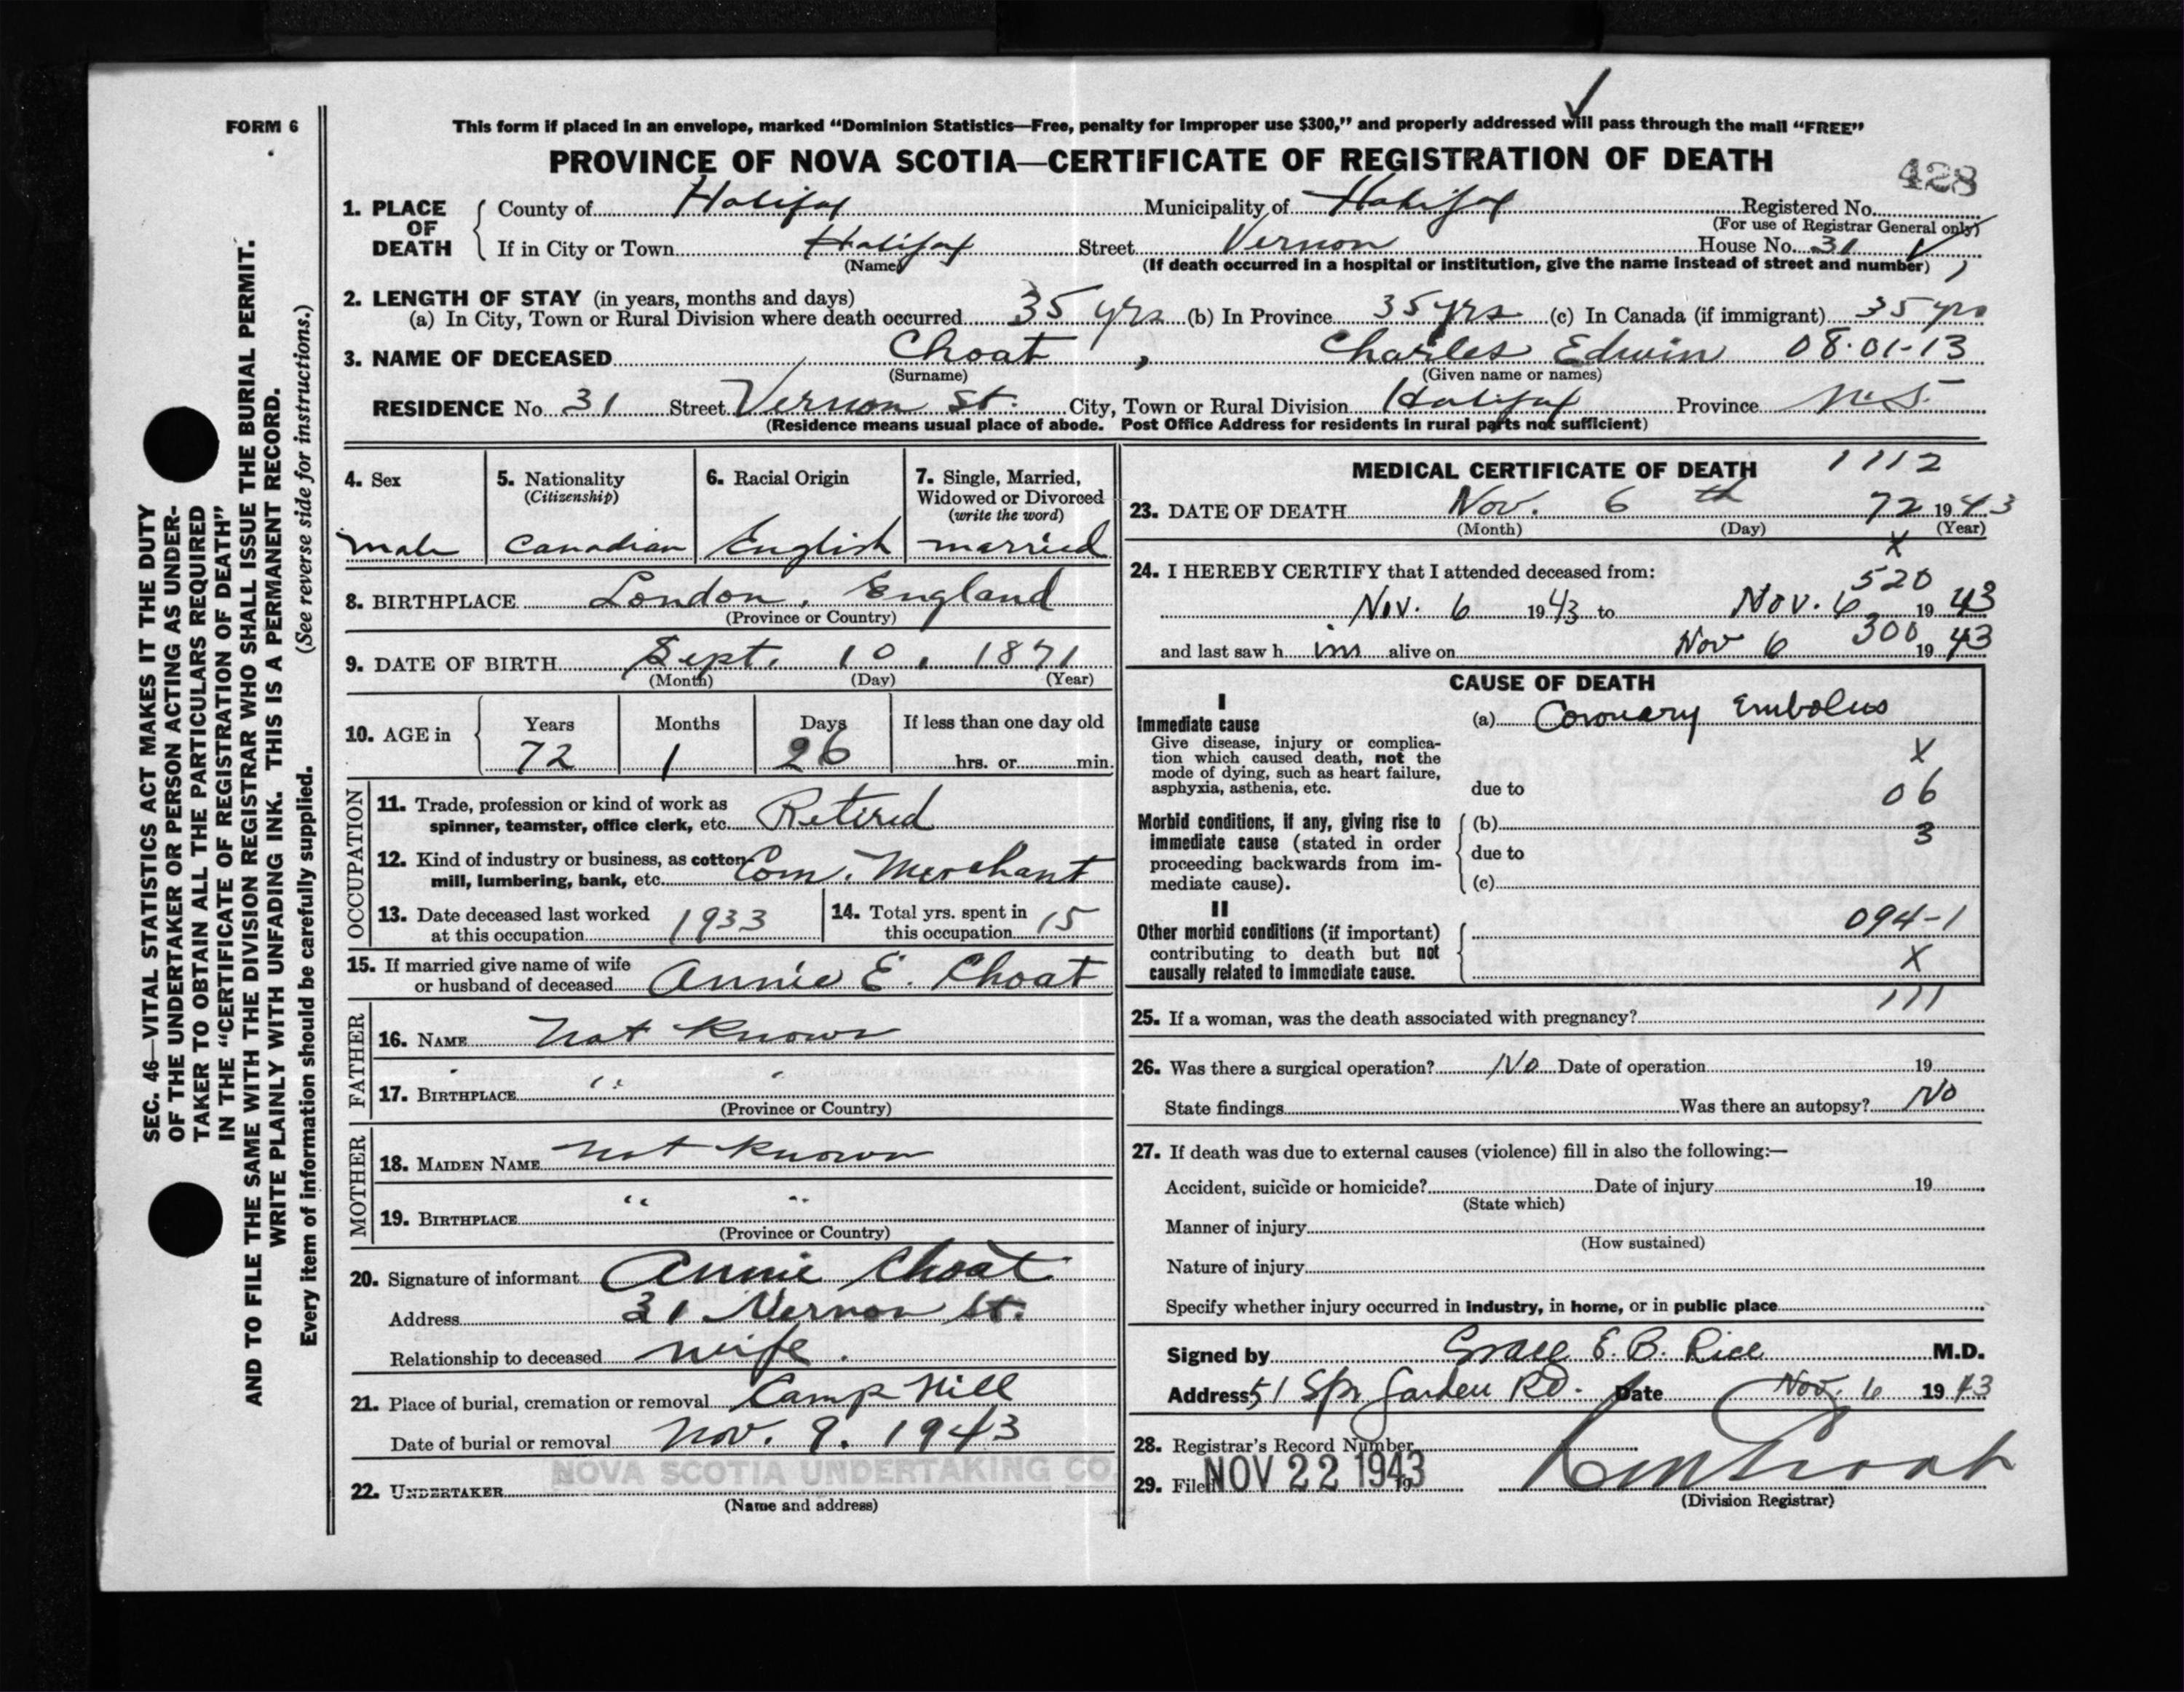 FORM 6
This form if placed in an envelope, marked “Dominion Statistics—Free, penalty for improper use $300,” and properly addressed will pass through the mail “FREE”
PROVINCE OF NOVA SCOTIA—CERTIFICATE OF REGISTRATION OF DEATH
428
1. PLACE OF DEATH
County of Halifax Municipality of Halifax Registered No.
(For use of Registrar General only)
If in City or Town Halifax Street Vernon House No. 31
(Name) (If death occurred in a hospital or institution, give the name instead of street and number)
2. LENGTH OF STAY (in years, months and days)
(a) In City, Town or Rural Division where death occurred 35 yrs (b) In Province 35 yrs (c) In Canada (if immigrant) 35 yrs
3. NAME OF DECEASED Choat, Charles Edwin 08·01-13
(Surname) (Given name or names)
RESIDENCE No. 31 Street Vernon St. City, Town or Rural Division Halifax Province N.S.
(Residence means usual place of abode. Post Office Address for residents in rural parts not sufficient)
4. Sex
male
5. Nationality
(Citizenship)
Canadian
6. Racial Origin
English
7. Single, Married,
Widowed or Divorced
(write the word)
married
8. BIRTHPLACE London, England
(Province or Country)
9. DATE OF BIRTH Sept. 10, 1871
(Month) (Day) (Year)
10. AGE in
Years Months Days If less than one day old
72 1 26 hrs. or min.
OCCUPATION
11. Trade, profession or kind of work as
spinner, teamster, office clerk, etc. Retired
12. Kind of industry or business, as cotton
mill, lumbering, bank, etc. Com. Merchant
13. Date deceased last worked
at this occupation 1933
14. Total yrs. spent in
this occupation 15
15. If married give name of wife
or husband of deceased Annie E. Choat
FATHER
16. NAME not known
17. BIRTHPLACE " "
(Province or Country)
MOTHER
18. MAIDEN NAME not known
19. BIRTHPLACE " "
(Province or Country)
20. Signature of informant Annie Choat
Address 31 Vernon St.
Relationship to deceased wife.
21. Place of burial, cremation or removal Camp Hill
Date of burial or removal Nov. 9. 1943
NOVA SCOTIA UNDERTAKING CO.
22. UNDERTAKER
(Name and address)
MEDICAL CERTIFICATE OF DEATH 1112
23. DATE OF DEATH Nov. 6 th 72 1943
(Month) (Day) (Year)
X
24. I HEREBY CERTIFY that I attended deceased from:
520
Nov. 6 1943 to Nov. 6 1943
300
and last saw h im alive on Nov 6 1943
CAUSE OF DEATH
I
Immediate cause
Give disease, injury or complica-
tion which caused death, not the
mode of dying, such as heart failure,
asphyxia, asthenia, etc.
(a) Coronary Embolus
X
due to
06
Morbid conditions, if any, giving rise to
immediate cause (stated in order
proceeding backwards from im-
mediate cause).
(b)
3
due to
(c)
II
Other morbid conditions (if important)
contributing to death but not
causally related to immediate cause.
094-1
X
111
25. If a woman, was the death associated with pregnancy?
26. Was there a surgical operation? No Date of operation 19
State findings Was there an autopsy? No
27. If death was due to external causes (violence) fill in also the following:—
Accident, suicide or homicide? Date of injury 19
(State which)
Manner of injury
(How sustained)
Nature of injury
Specify whether injury occurred in industry, in home, or in public place
Signed by Grace E. B. Rice M.D.
Address 51 Spr Garden Rd. Date Nov. 6 1943
28. Registrar's Record Number
29. Filed NOV 22 1943 19
(Division Registrar)
SEC. 46—VITAL STATISTICS ACT MAKES IT THE DUTY
OF THE UNDERTAKER OR PERSON ACTING AS UNDER-
TAKER TO OBTAIN ALL THE PARTICULARS REQUIRED
IN THE “CERTIFICATE OF REGISTRATION OF DEATH”
AND TO FILE THE SAME WITH THE DIVISION REGISTRAR WHO SHALL ISSUE THE BURIAL PERMIT.
WRITE PLAINLY WITH UNFADING INK. THIS IS A PERMANENT RECORD.
Every item of information should be carefully supplied. (See reverse side for instructions.)